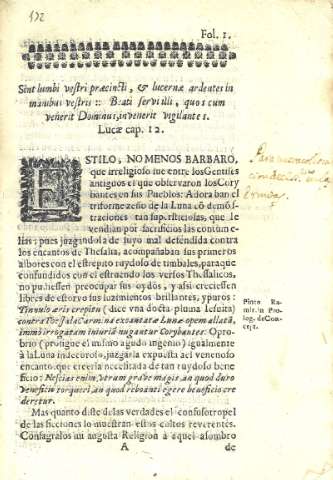 Fol. 1.
Sint lumbi vestri præcincti, & lucernæ ardentes in
manibus vestris :: Beati servi illi, quos cum
venerit Dominus, invenerit vigilantes.
Lucæ cap. 12.
ESTILO, NO MENOS BARBARO,
que irreligioso fue entre los Gentiles
antiguos el que observaron los Cory
bantes en sus Pueblos: Adoraban el
triforme zeño de la Luna cõ demõs
traciones tan supersticiosas, que le
vendian por sacrificios las contume-
lias: pues juzgandola de suyo mal defendida contra
los encantos de Thesalia, acompañaban sus primeros
albores con el estrepito ruydoso de timbales, para que
confundidos con el estruendo los versos Thesalicos,
no pudiessen preocupar sus oydos, y assi creciessen
libres de estorvo sus luzimientos brillantes, y puros:
Tinnulo æris crepitu (dice vna docta pluma Iesuita)
contra Thessala Carmina excantatæ Lunæ opem allatã,
immò irrogatam iniuriã nugantur Corybantes. Opro-
brio (prosigue el mismo agudo ingenio) igualmente
à la Luna indecoroso, juzgarla expuesta al venenoso
encanto: que creerla necessitada de tan ruydoso bene
ficio: Nescias enim, vtrum gravè magis, an quod duro
veneficio torqueri, an quod reboanti egere beneficio cre
deretur.
Mas quanto diste de las verdades el confuso tropel
de las ficciones lo muestran estos cultos reverentes.
Consagralos mi augosta Religion à aquel assombro
A
de
Pinto Ra-
mir. in Pro
log. de Con-
cep.